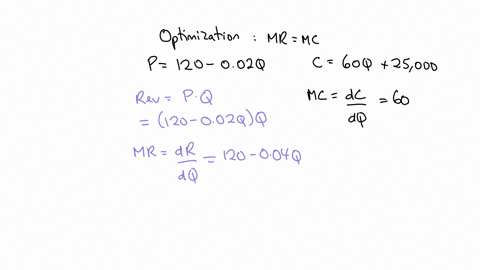 Optimization : MR = MC
P = 120 - 0.02Q
C = 60Q + 25,000
Rev = P·Q
= (120 - 0.02Q)Q
MC = dC/dQ = 60
MR = dR/dQ = 120 - 0.04Q